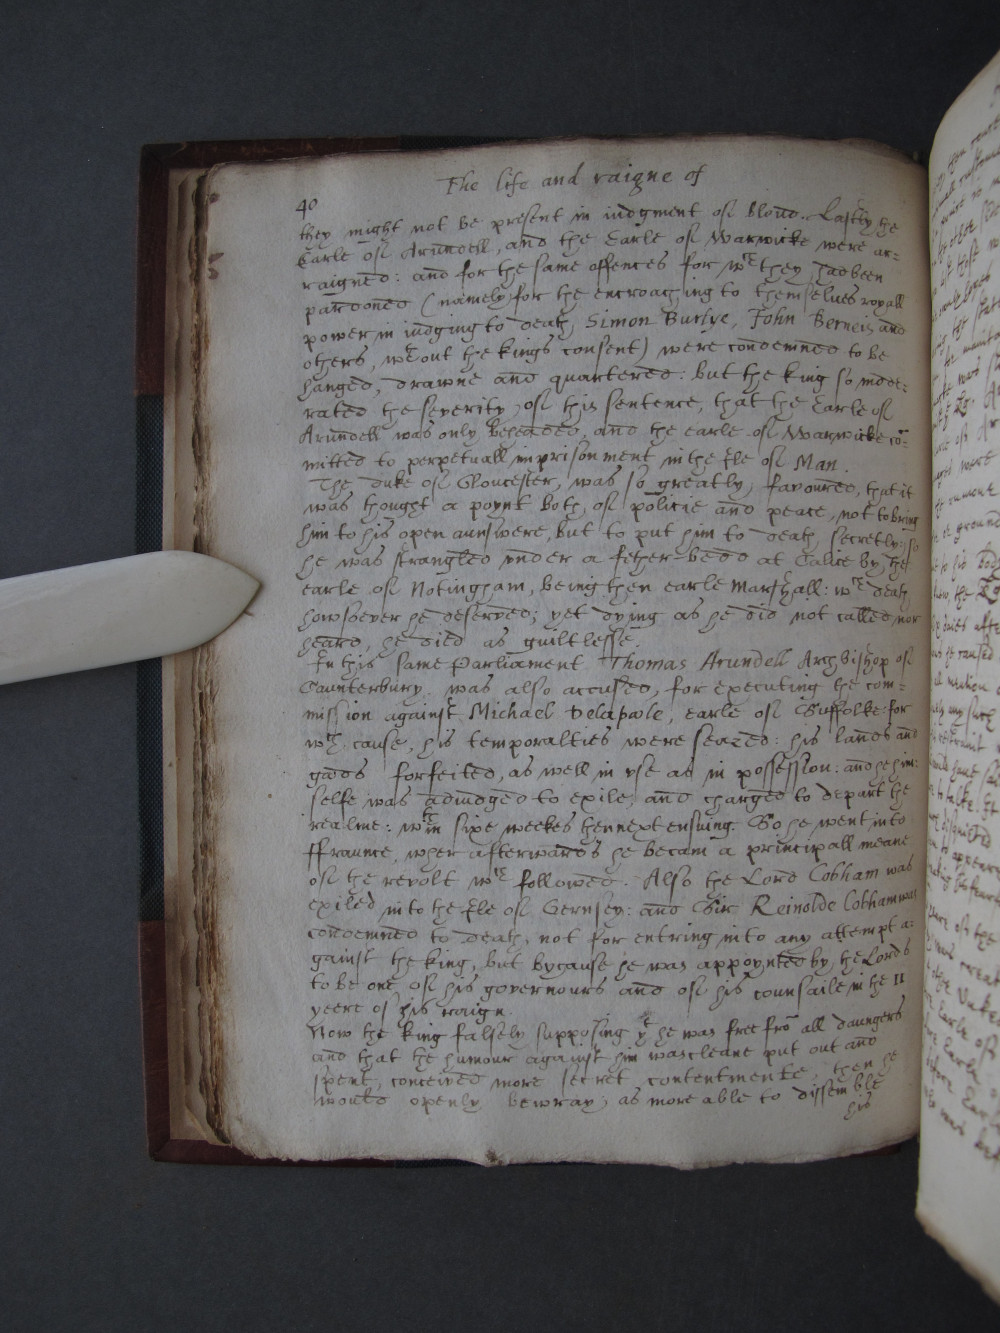 The life and raigne of
40
they might not be present in iudgment of bloud. Lastly the
Earle of Arundell, and the Earle of Warwicke were ar=
raigned: and for the same offences for wch they had been
pardoned (namely for the encroaching to themselues royall
power in iudging to death, Simon Burlye, John Berneis and
others, wthout the kings consent) were condemned to be
hanged, drawne and quartered: but the king so mode=
rated the severity of this sentence, that the Earle of
Arundell was only beheaded, and the earle of Warwicke cō=
mitted to perpetuall imprisonment in the Ile of Man.
The Duke of Gloucester, was so greatly favoured, that it
was thought a poynt both of policie and peace, not to bring
him to his open aunswere, but to put him to death secretly: so
he was strangled vnder a fether-bedd at Calice by the
earle of Notingham, being then earle Marshall: wch death
howsoever he deserved; yet dying as he did not called nor
heard, he died as guiltlesse.
In this same Parliament Thomas Arundell Archbishop of
Caunterbury was also accused, for executing the com=
mission against Michael Delapoole, earle of Suffolke: for
wch cause, his temporalties were seazed: his lands and
goods forfeited, as well in vse as in possession: and he him=
selfe was adiudged to exile, and charged to depart the
realme: wthin sixe weekes then next ensuing. So he went into
ffraunce, wher afterwards he becam a principall meane
of the revolt wch followed. Also the Lord Cobham was
exiled into the Ile of Gernsey: and Sir Reinolde Cobham was
condemned to death, not for entring into any attempt a=
gainst the king, but bycause he was appoynted by the Lords
to be one of his governours and of his counsaile in the 11
yeere of his raign.
Now the king falsely supposing yt he was free frō all daungers
and that the humour against him was cleane put out and
spent, conceived more secret contentmente, then he
would openly bewray; as more able to dissemble
his